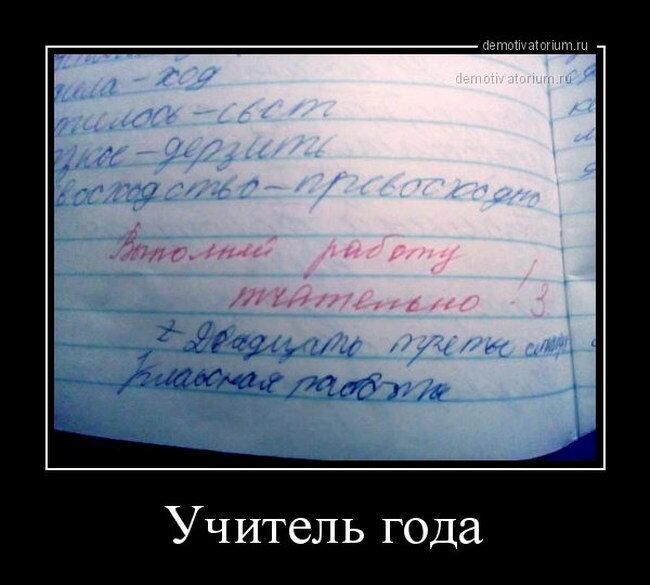 demotivatorium.ru
demotivatorium.ru
– ход
– дерзить
восходство – превосходно
Выполняй работу
тчательно ! 3
Двадцать третье
Классная работа
Учитель года